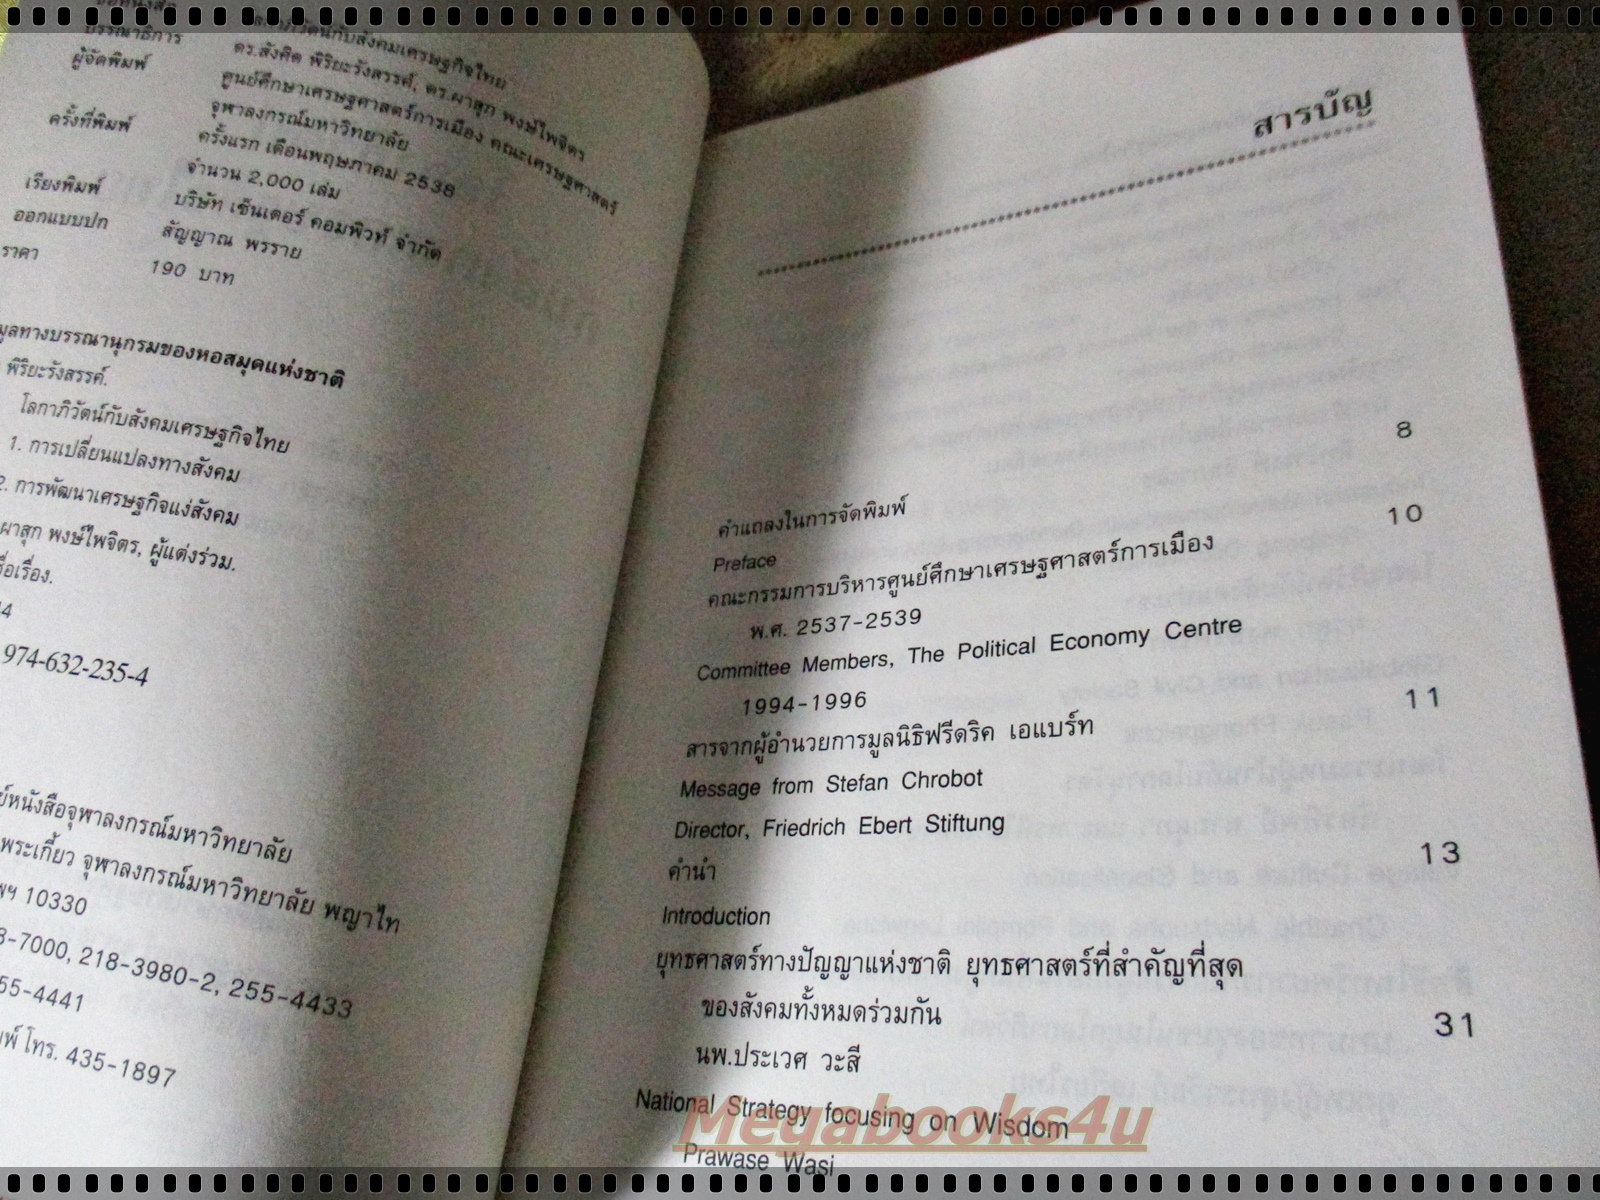 บรรณาธิการ
ผู้จัดพิมพ์
ครั้งที่พิมพ์
เรียงพิมพ์
ออกแบบปก
ราคา
กับสังคมเศรษฐกิจไทย
ดร.สังศิต พิริยะรังสรรค์, ดร.ผาสุก พงษ์ไพจิตร
ศูนย์ศึกษาเศรษฐศาสตร์การเมือง คณะเศรษฐศาสตร์
จุฬาลงกรณ์มหาวิทยาลัย
ครั้งแรก เดือนพฤษภาคม 2538
จำนวน 2,000 เล่ม
บริษัท เซ็นเตอร์ คอมพิวท์ จำกัด
สัญญาณ พรราย
190 บาท
มูลทางบรรณานุกรมของหอสมุดแห่งชาติ
พิริยะรังสรรค์.
โลกาภิวัตน์กับสังคมเศรษฐกิจไทย
1. การเปลี่ยนแปลงทางสังคม
2. การพัฒนาเศรษฐกิจแง่สังคม
ผาสุก พงษ์ไพจิตร, ผู้แต่งร่วม.
ชื่อเรื่อง.
974-632-235-4
ย์หนังสือจุฬาลงกรณ์มหาวิทยาลัย
พระเกี้ยว จุฬาลงกรณ์มหาวิทยาลัย พญาไท
ฯ 10330
8-7000, 218-3980-2, 255-4433
55-4441
พ์ โทร. 435-1897
สารบัญ
คำแถลงในการจัดพิมพ์ 8
Preface
คณะกรรมการบริหารศูนย์ศึกษาเศรษฐศาสตร์การเมือง 10
พ.ศ. 2537-2539
Committee Members, The Political Economy Centre
1994-1996
สารจากผู้อำนวยการมูลนิธิฟรีดริค เอแบร์ท 11
Message from Stefan Chrobot
Director, Friedrich Ebert Stiftung
คำนำ 13
Introduction
ยุทธศาสตร์ทางปัญญาแห่งชาติ ยุทธศาสตร์ที่สำคัญที่สุด
ของสังคมทั้งหมดร่วมกัน 31
นพ.ประเวศ วะสี
National Strategy focusing on Wisdom
Prawase Wasi
Megabooks4u